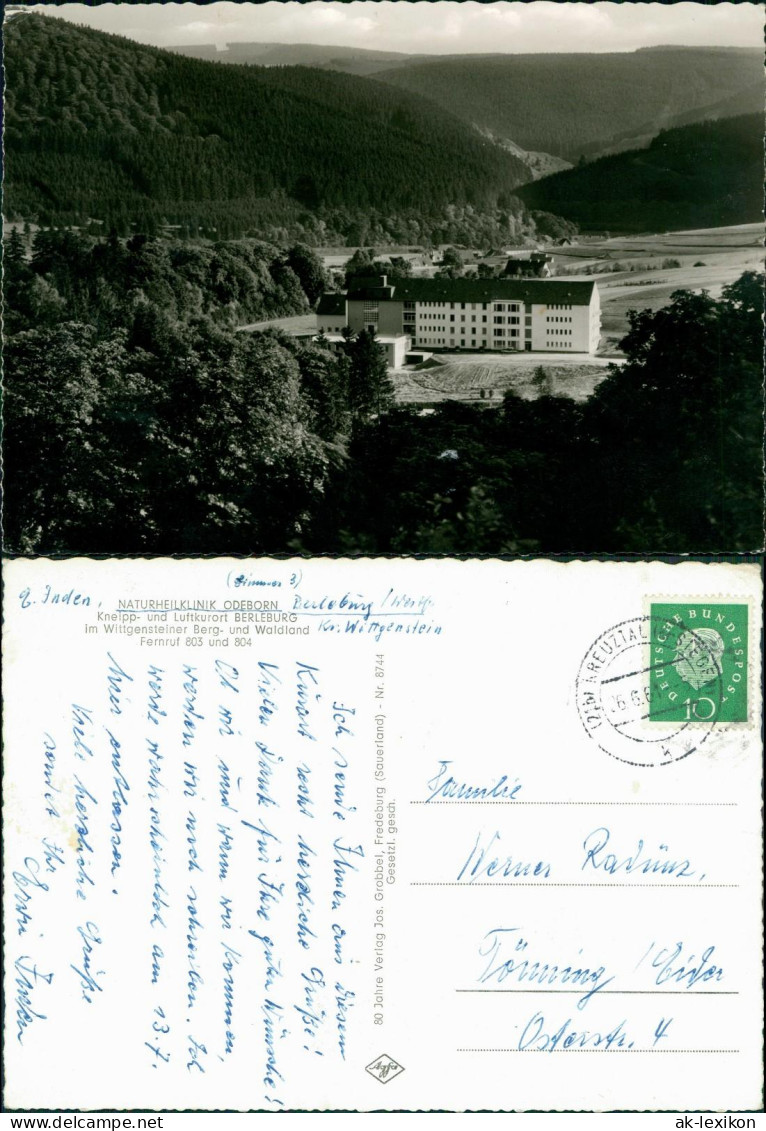 (Zimmer 3)
z. Inden, NATURHEILKLINIK ODEBORN Berleburg / Westf.
Kneipp- und Luftkurort BERLEBURG Kr. Wittgenstein
im Wittgensteiner Berg- und Waldland
Fernruf 803 und 804
Ich sende Ihnen aus diesem
Kurort recht herzliche Grüße!
Vielen Dank für Ihre guten Wünsche!
Ob wir und wann wir kommen,
werden wir noch schreiben. Ich
werde wahrscheinlich am 13.7.
hier entlassen.
Viele herzliche Grüße
somit Ihr
Erwin Inden
80 Jahre Verlag Jos. Grobbel, Fredeburg (Sauerland) - Nr. 8744
Gesetzl. gesch.
DEUTSCHE BUNDESPOST
10
KREUZTAL
Familie
Werner Radünz,
Tönning / Eider
Osterstr. 4
www.ak-ansichtskarten.de
ak-lexikon.com